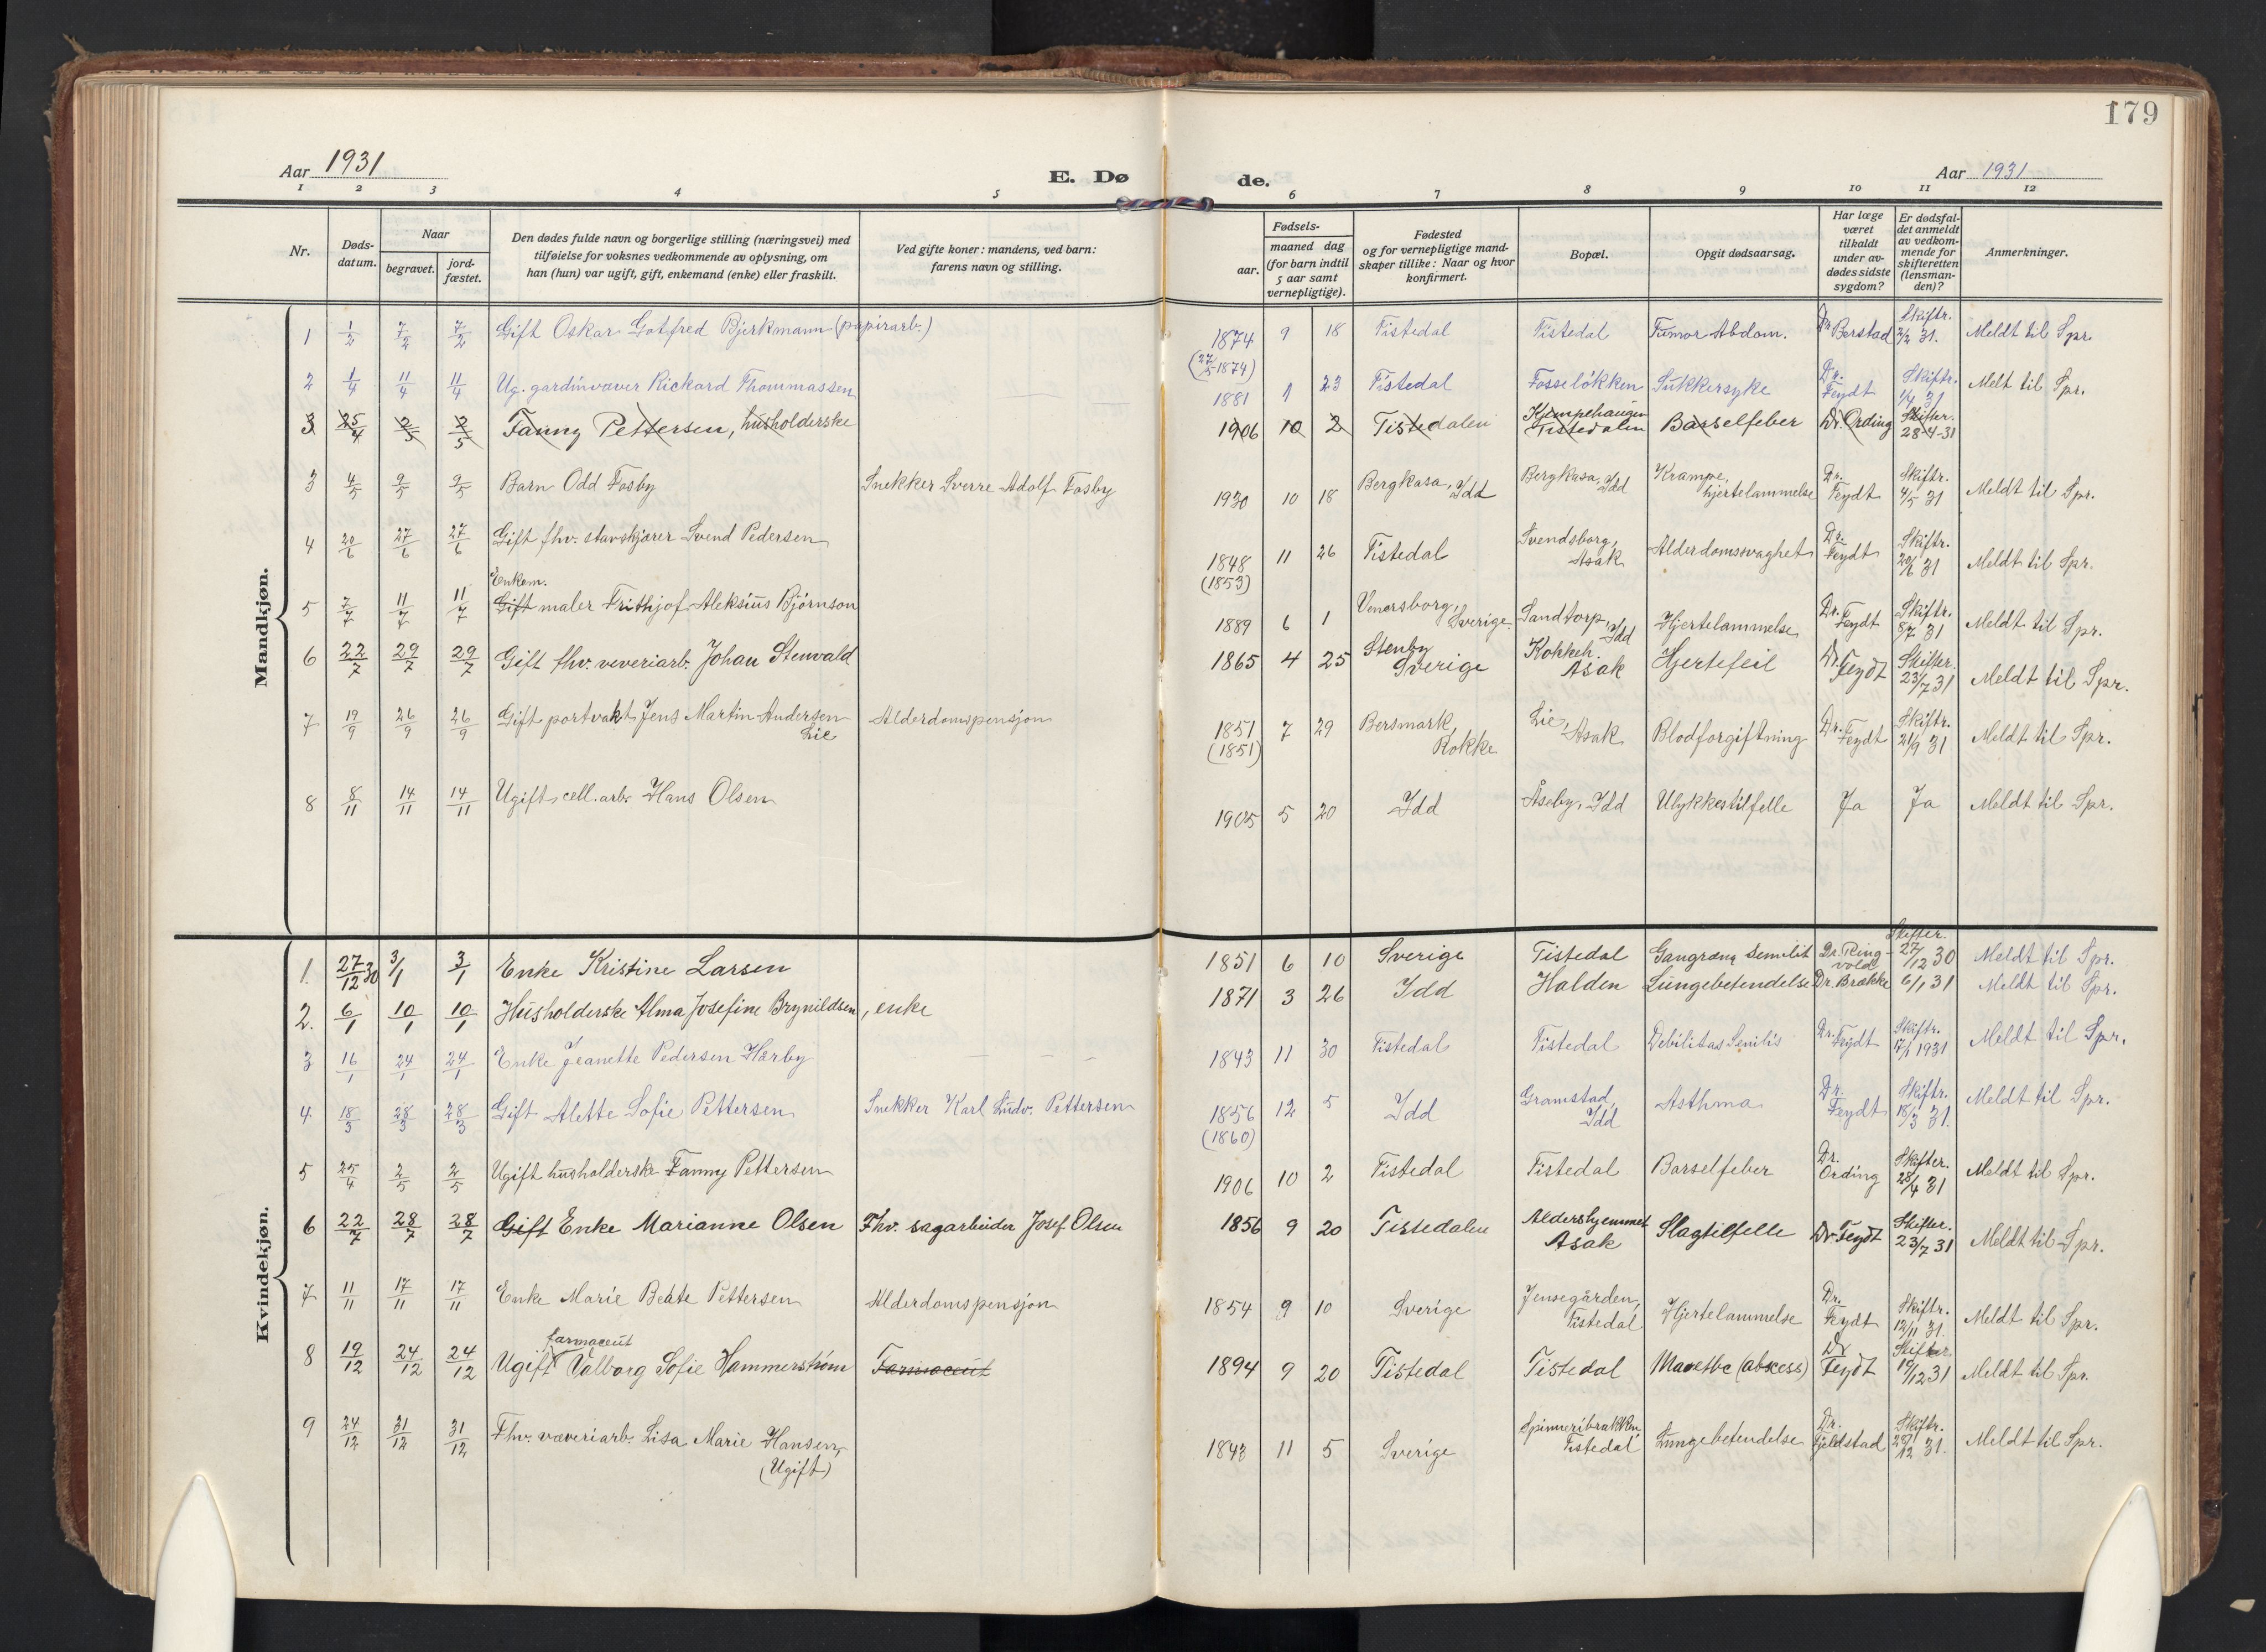 179
Aar 1931
E. Dø
de.
Aar 1931
1 2 3 4 5 6 7 8 9 10 11 12
Nr.
Døds-datum.
Naar
begravet.
jord-fæstet.
Den dødes fulde navn og borgerlige stilling (næringsvei) med
tilføielse for voksnes vedkommende av oplysning, om
han (hun) var ugift, gift, enkemand (enke) eller fraskilt.
Ved gifte koner: mandens, ved barn:
farens navn og stilling.
Fødsels-
aar.
maaned dag
(for barn indtil
5 aar samt
vernepligtige).
Fødested
og for vernepligtige mand-
skaper tillike: Naar og hvor
konfirmert.
Bopæl.
Opgit dødsaarsag.
Har læge
været
tilkaldt
under av-
dødes sidste
sygdom?
Er dødsfal-
det anmeldt
av vedkom-
mende for
skifteretten
(lensman-
den)?
Anmerkninger.
Mandkjøn.
1 1/2 7/2 7/2 Gift Oskar Gotfred Bjerkmann (papirarb.) 1874 (27/5 1874) 9 18 Tistedal Tistedal Tumor Abdom. Dr. Berstad Skiftr. 2/2 31. Meldt til Spr.
2 1/4 11/4 11/4 Ug. gardinvaver Rickard Thommassen 1881 1 23 Tistedal Fosseløkken Sukkersyke Dr. Feydt Skiftr. 1/4 31 Meldt til Spr.
3 25/4 2/5 2/5 Fanny Pettersen, husholderske 1906 10 2 Tistedalen Kjempehaugen Tistedalen Barselfeber Dr. Ording Skifter. 28-4-31
3 4/5 9/5 9/5 Barn Odd Fosby Snekker Sverre Adolf Fosby 1930 10 18 Bergkasa, Idd Bergkasa, Idd Krampe, hjertelammelse Dr. Feydt Skiftr. 4/5 31 Meldt til Spr.
4 20/6 27/6 27/6 Gift fhv. stavskjærer Svend Pedersen 1848 (1853) 11 26 Tistedal Svendsborg, Asak Alderdomssvaghet Dr. Feydt Skiftr. 20/6 31 Meldt til Spr.
5 7/7 11/7 11/7 Enkem. Gift maler Frithjof Aleksius Bjørnson 1889 6 1 Venersborg, Sverige Sandtorp, Idd Hjertelammelse Dr. Feydt Skiftr. 8/7 31 Meldt til Spr.
6 22/7 29/7 29/7 Gift fhv. veveriarb. Johan Stenvald 1865 4 25 Stenby Sverige Kokkeh. Asak Hjertefeil Dr. Feydt Skifter. 23/7 31 Meldt til Spr.
7 19/9 26/9 26/9 Gift portvakt Jens Martin Andersen Lie Alderdomspensjon 1851 (1851) 7 29 Bersmark, Rokke Lie, Asak Blodforgiftning Dr. Feydt Skiftr. 21/9 31 Meldt til Spr.
8 8/11 14/11 14/11 Ugift cell.arb. Hans Olsen 1905 5 20 Idd Åseby, Idd Ulykkestilfelle Ja Ja Meldt til Spr.
Kvindekjøn.
1. 27/12 30 3/1 3/1 Enke Kristine Larsen 1851 6 10 Sverige Tistedal Gangræna Dr. Ringvold Skifter. 27/12 30 Meldt til Spr.
2. 6/1 10/1 10/1 Husholderske Alma Josefine Brynildsen, enke 1871 3 26 Idd Halden Lungebetendelse Dr. Brække 6/1 31 Meldt til Spr.
3 16/1 24/1 24/1 Enke Jeanette Pedersen Hårby 1843 11 30 Tistedal Tistedal Debilitas Senilis Dr. Feydt Skiftr. 17/1 1931 Meldt til Spr.
4 18/3 28/3 28/3 Gift Alette Sofie Pettersen Snekker Karl Ludv. Pettersen 1856 (1860) 12 5 Idd Gramstad, Idd Asthma Dr. Feydt Skiftr. 18/3 31. Meldt til Spr.
5 25/4 2/5 2/5 Ugift husholderske Fanny Pettersen 1906 10 2 Tistedal Tistedal Barselfeber Dr. Ording Skifter. 28/4 31 Meldt til Spr.
6 22/7 28/7 28/7 Gift Enke Marianne Olsen Fhv. sagarbeider Josef Olsen 1856 9 20 Tistedalen Aldershjemmet Asak Slagtilfelle Dr. Feydt Skifter. 23/7 31 Meldt til Spr.
7 11/11 17/11 17/11 Enke Marie Beate Pettersen Alderdomspensjon 1854 9 10 Sverige Jensegården, Tistedal Hjertelammelse Dr. Feydt Skiftr. 12/11 31. Meldt til Spr.
8 19/12 24/12 24/12 Ugift farmaceut Valborg Sofie Hammerstrøm Farmaceut 1894 9 20 Tistedal Tistedal (abscess) Dr Feydt Skifter. 19/12 31 Meldt til Spr.
9 24/12 31/12 31/12 Fhv. væveriarb. Lisa Marie Hansen, (Ugift) 1848 11 5 Sverige Spinneribrakken Tistedal Lungebetendelse Dr. Fjeldstad Skiftr. 28/12 31. Meldt til Spr.